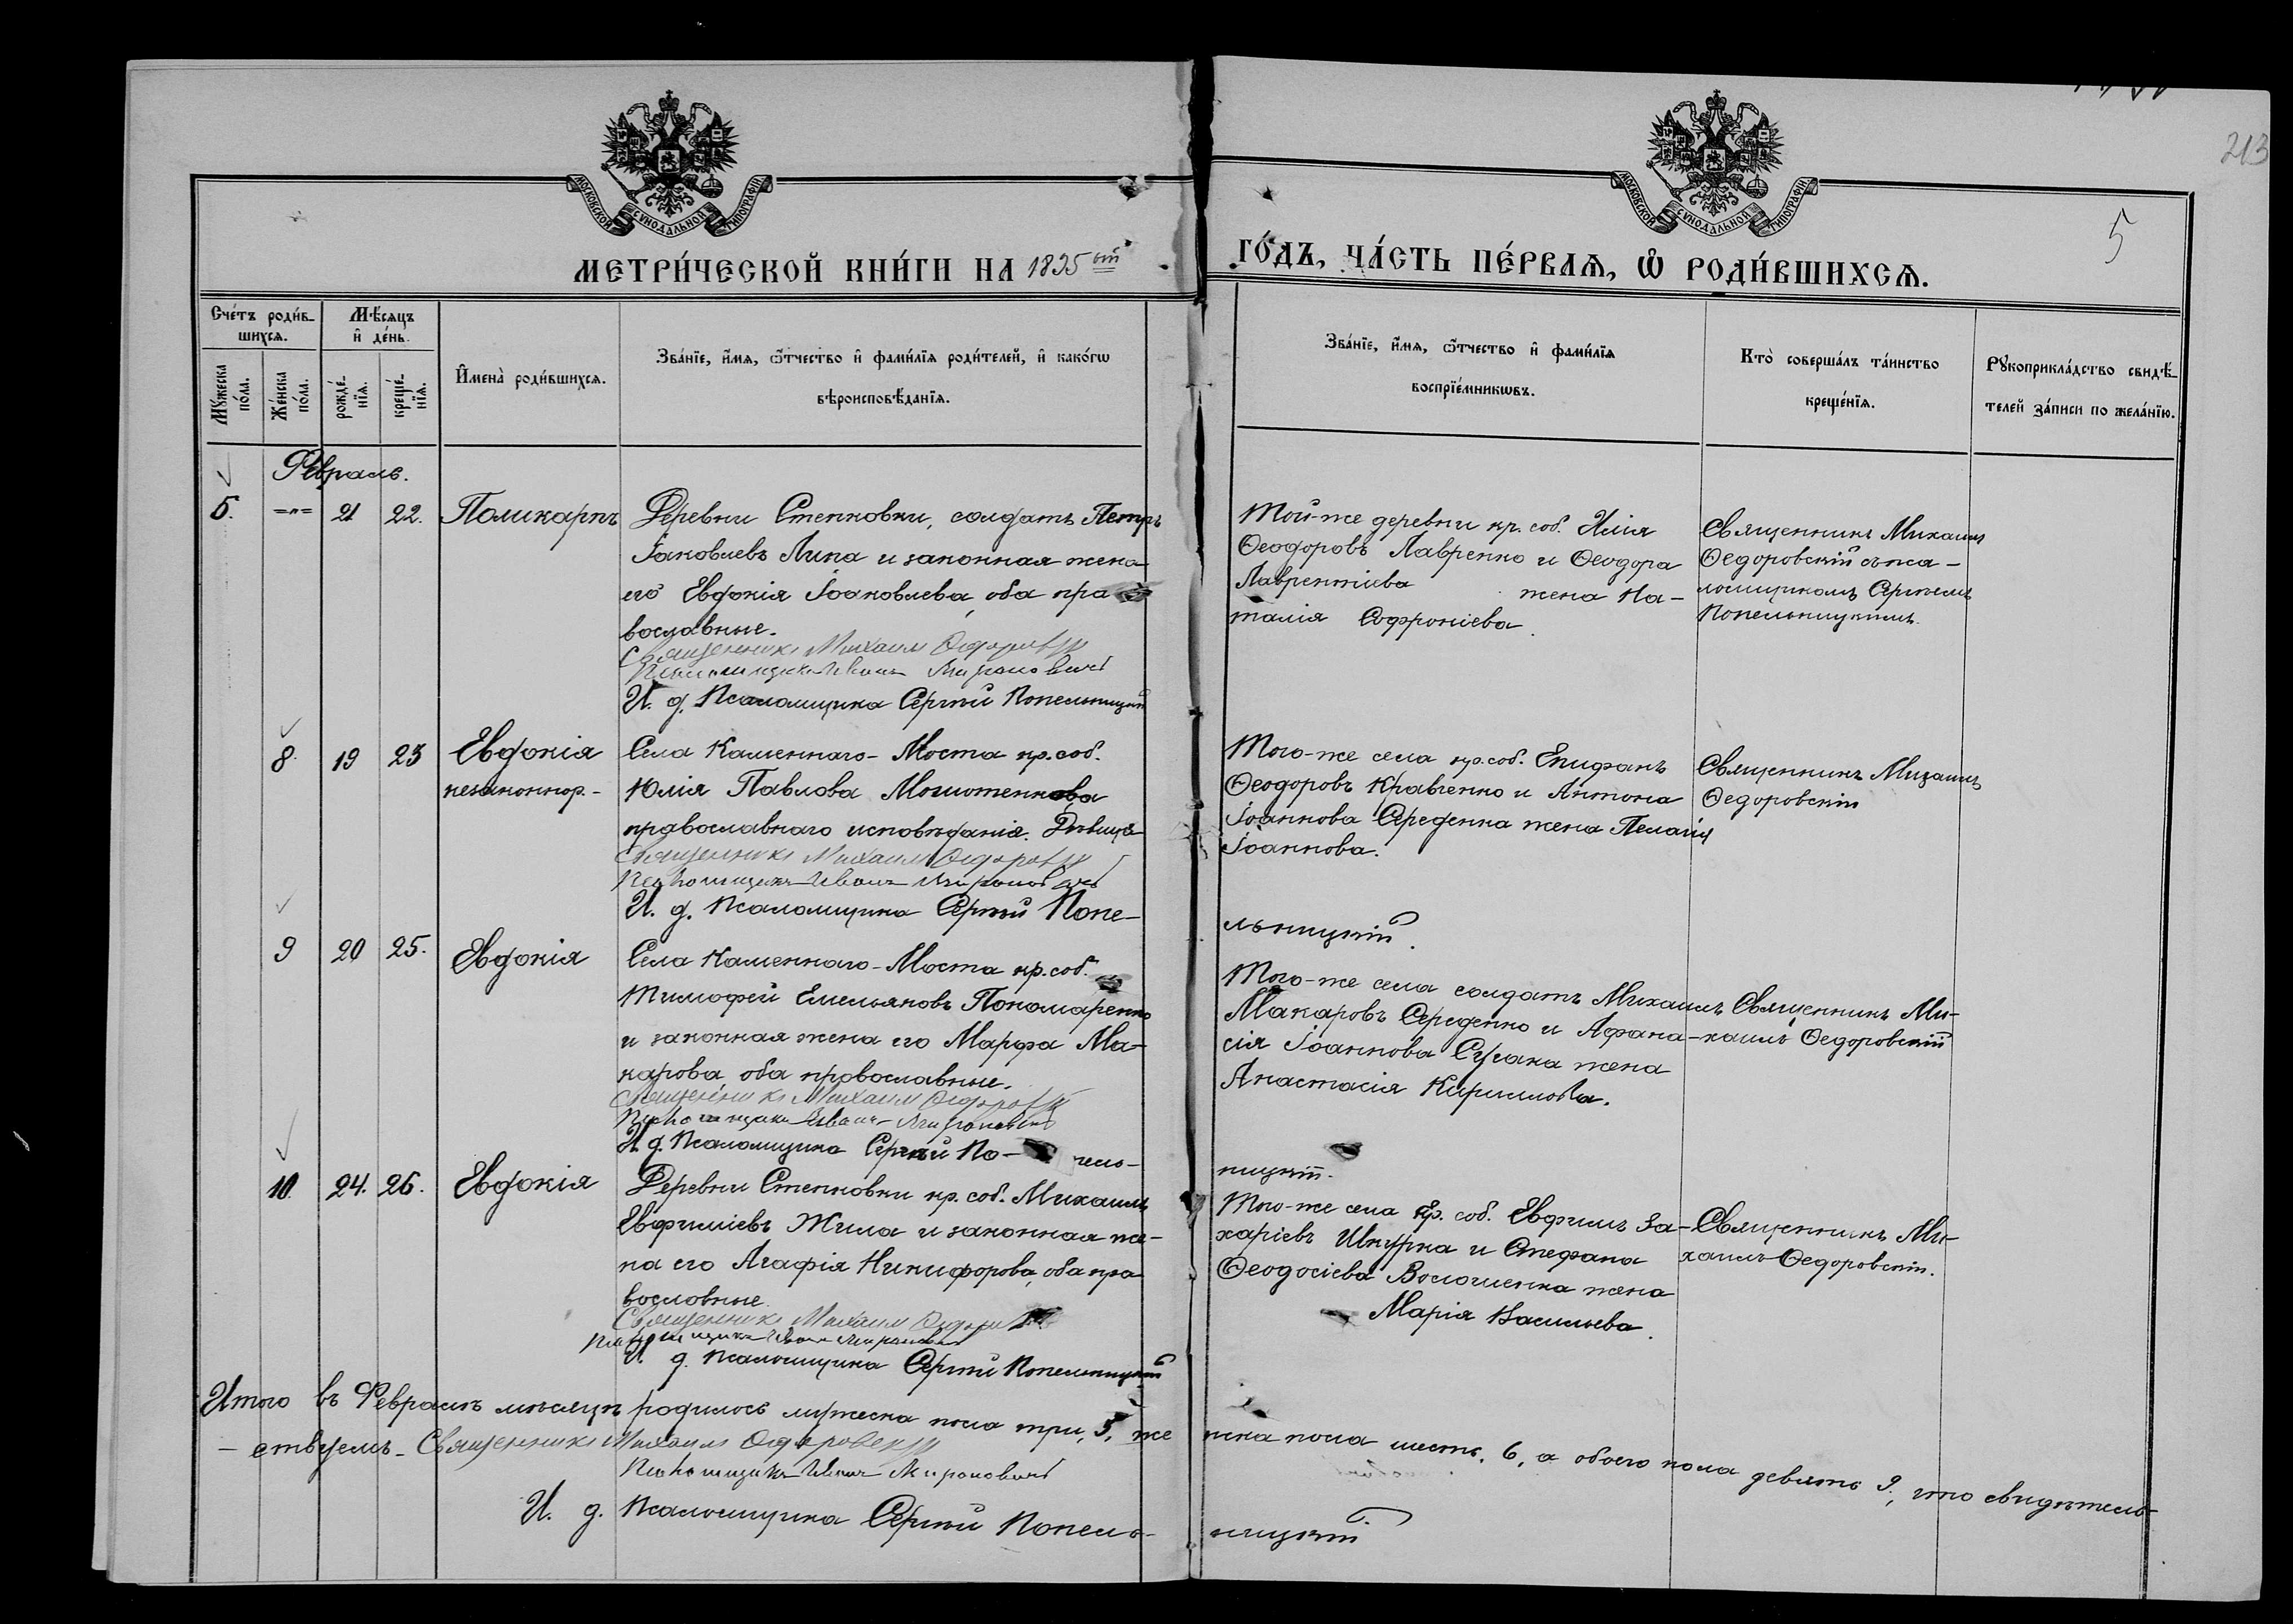 213
5
МОСКОВСКОЙ СѴНОДАЛЬНОЙ ТИПОГРАФІИ
МОСКОВСКОЙ СѴНОДАЛЬНОЙ ТИПОГРАФІИ
МЕТРИ́ЧЕСКОЙ КНИ́ГИ НА 1895 ый
ГО́ДЪ, ЧА́СТЬ ПЕ́РВАѦ, Ѽ РОДИ́ВШИХСѦ.
Сче́тъ роди́в-
шихсѧ.
Мѣ́сѧцъ
и҆ де́нь.
Мꙋ́жеска по́ла.
Же́нска по́ла.
рожде́-
нїѧ.
креще́-
нїѧ.
И҆мена̀ роди́вшихсѧ.
Зва́нїе, и҆́мѧ, ѻ҆́тчество и҆ фами́лїѧ роди́телей, и҆ како́гѡ
вѣроисповѣ́данїѧ.
Зва́нїе, и҆́мѧ, ѻ҆́тчество и҆ фами́лїѧ
воспрїе́мникѡвъ.
Кто̀ соверша́лъ та́инство
креще́нїѧ.
Рꙋкоприкла́дство свидѣ́-
телей за́писи по жела́нїю.
Февраль.
5. =„= 21 22. Поликарпъ
Деревни Степковки, солдатъ Петръ
Іаковлевъ Липа и законная жена
его Евдокія Іоаковлева, оба пра
вославные.
Священникъ Михаил Ѳедоровскій
Псаломщикъ Иванъ Мироновичъ
И. д. Псаломщика Сергій Попельницкій
Той-же деревни кр. соб. Илія
Ѳеодоровъ Лавренко и Ѳеодора
Лаврентіева жена На-
талія Софроніева.
Священникъ Михаилъ
Ѳедоровскій съ пса-
ломщикомъ Сергіемъ
Попельницкимъ.
8. 19 23 Евдокія
незаконнор.
Села Каменнаго-Моста кр. соб.
Юлія Павлова
православнаго исповѣданія. Дѣвица
Священникъ Михаил Ѳедоровскій
Псаломщикъ Иванъ Мироновичъ
И. д. Псаломщика Сергій Попе-
льницкій.
Того-же села кр. соб. Епифанъ
Ѳеодоровъ Кравченко и Антона
Іоаннова Середенка жена Пелагія
Іоаннова.
Священникъ Михаилъ
Ѳедоровскій
9 20 25. Евдокія
Села Каменнаго-Моста кр. соб.
Тимофей Емельяновъ Пономаренко
и законная жена его Марфа Ма-
карова оба православные.
Священникъ Михаил Ѳедоровскій
Псаломщикъ Иванъ Мироновичъ
И. д. Псаломщика Сергій По- пель-
ницкій.
Того-же села солдатъ Михаилъ
Макаровъ Середенко и Афана-
сія Іоаннова жена
Анастасія Кириллова.
Священникъ Ми-
хаилъ Ѳедоровскій
10. 24. 26. Евдокія
Деревни Степковки кр. соб. Михаилъ
Евфиміевъ Жила и законная же-
на его Агафія Никифорова, оба пра
вославные
Священникъ Михаил
Псаломщикъ Иванъ Мироновичъ
И. д. Псаломщика Сергій Попельницкій
Того-же села кр. соб. Евфимъ За-
харіевъ Шкурка и Стефана
Ѳеодосіева Волошенка жена
Марія Васильева.
Священникъ Ми-
хаилъ Ѳедоровскій.
Итого въ Февралѣ мѣсяцѣ родилось мужеска пола три, 3, же нска пола шесть, 6, а обоего пола девять 9, что свидѣтель-
ствуемъ. Священникъ Михаилъ Ѳедоровскій
Псаломщикъ Иванъ Мироновичъ
И. д. Псаломщика Сергій Попель- ницкій